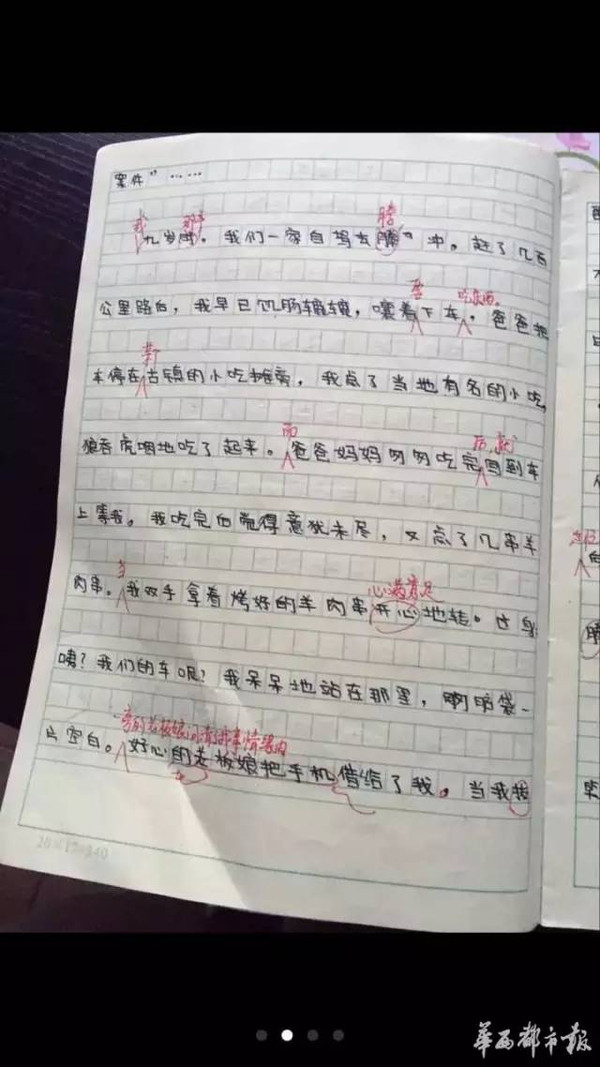 案件”……
我 那年 腾
九岁时，我们一家自驾去腾冲。赶了几百
要 吃东西。
公里路后，我早已饥肠辘辘，嚷着下车。爸爸把
某个
车停在古镇的小吃摊旁，我点了当地有名的小吃
而 后，就
狼吞虎咽地吃了起来。爸爸妈妈匆匆吃完回到车
上等我。我吃完后觉得意犹未尽，又点了几串羊
当 心满意足
肉串。我双手拿着烤好的羊肉串开心地转过身
咦？我们的车呢？我呆呆地站在那里，脑袋一
旁的老板娘 事情缘由
片空白。好心的老板娘把手机借给了我。当我拨
20×17=340
华西都市报